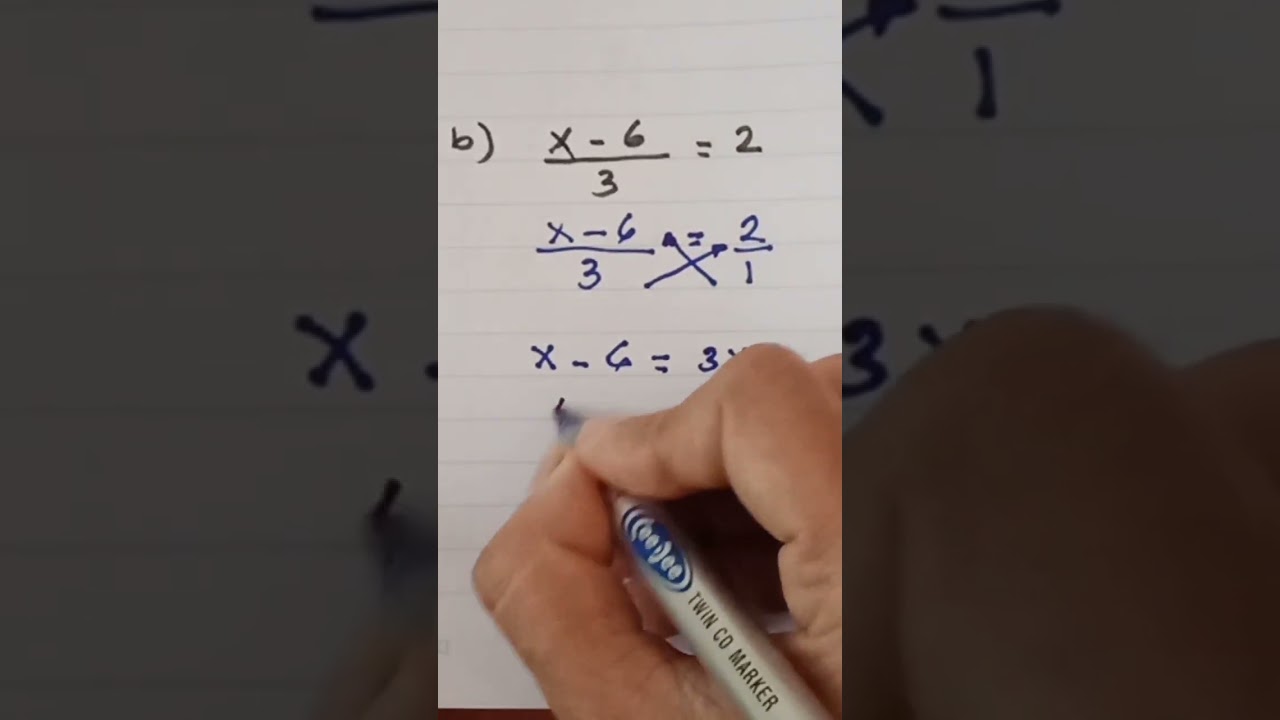 b) x - 6 = 2
3
x - 6 = 2
3 1
x - 6 = 3x
TWIN CD MARKER